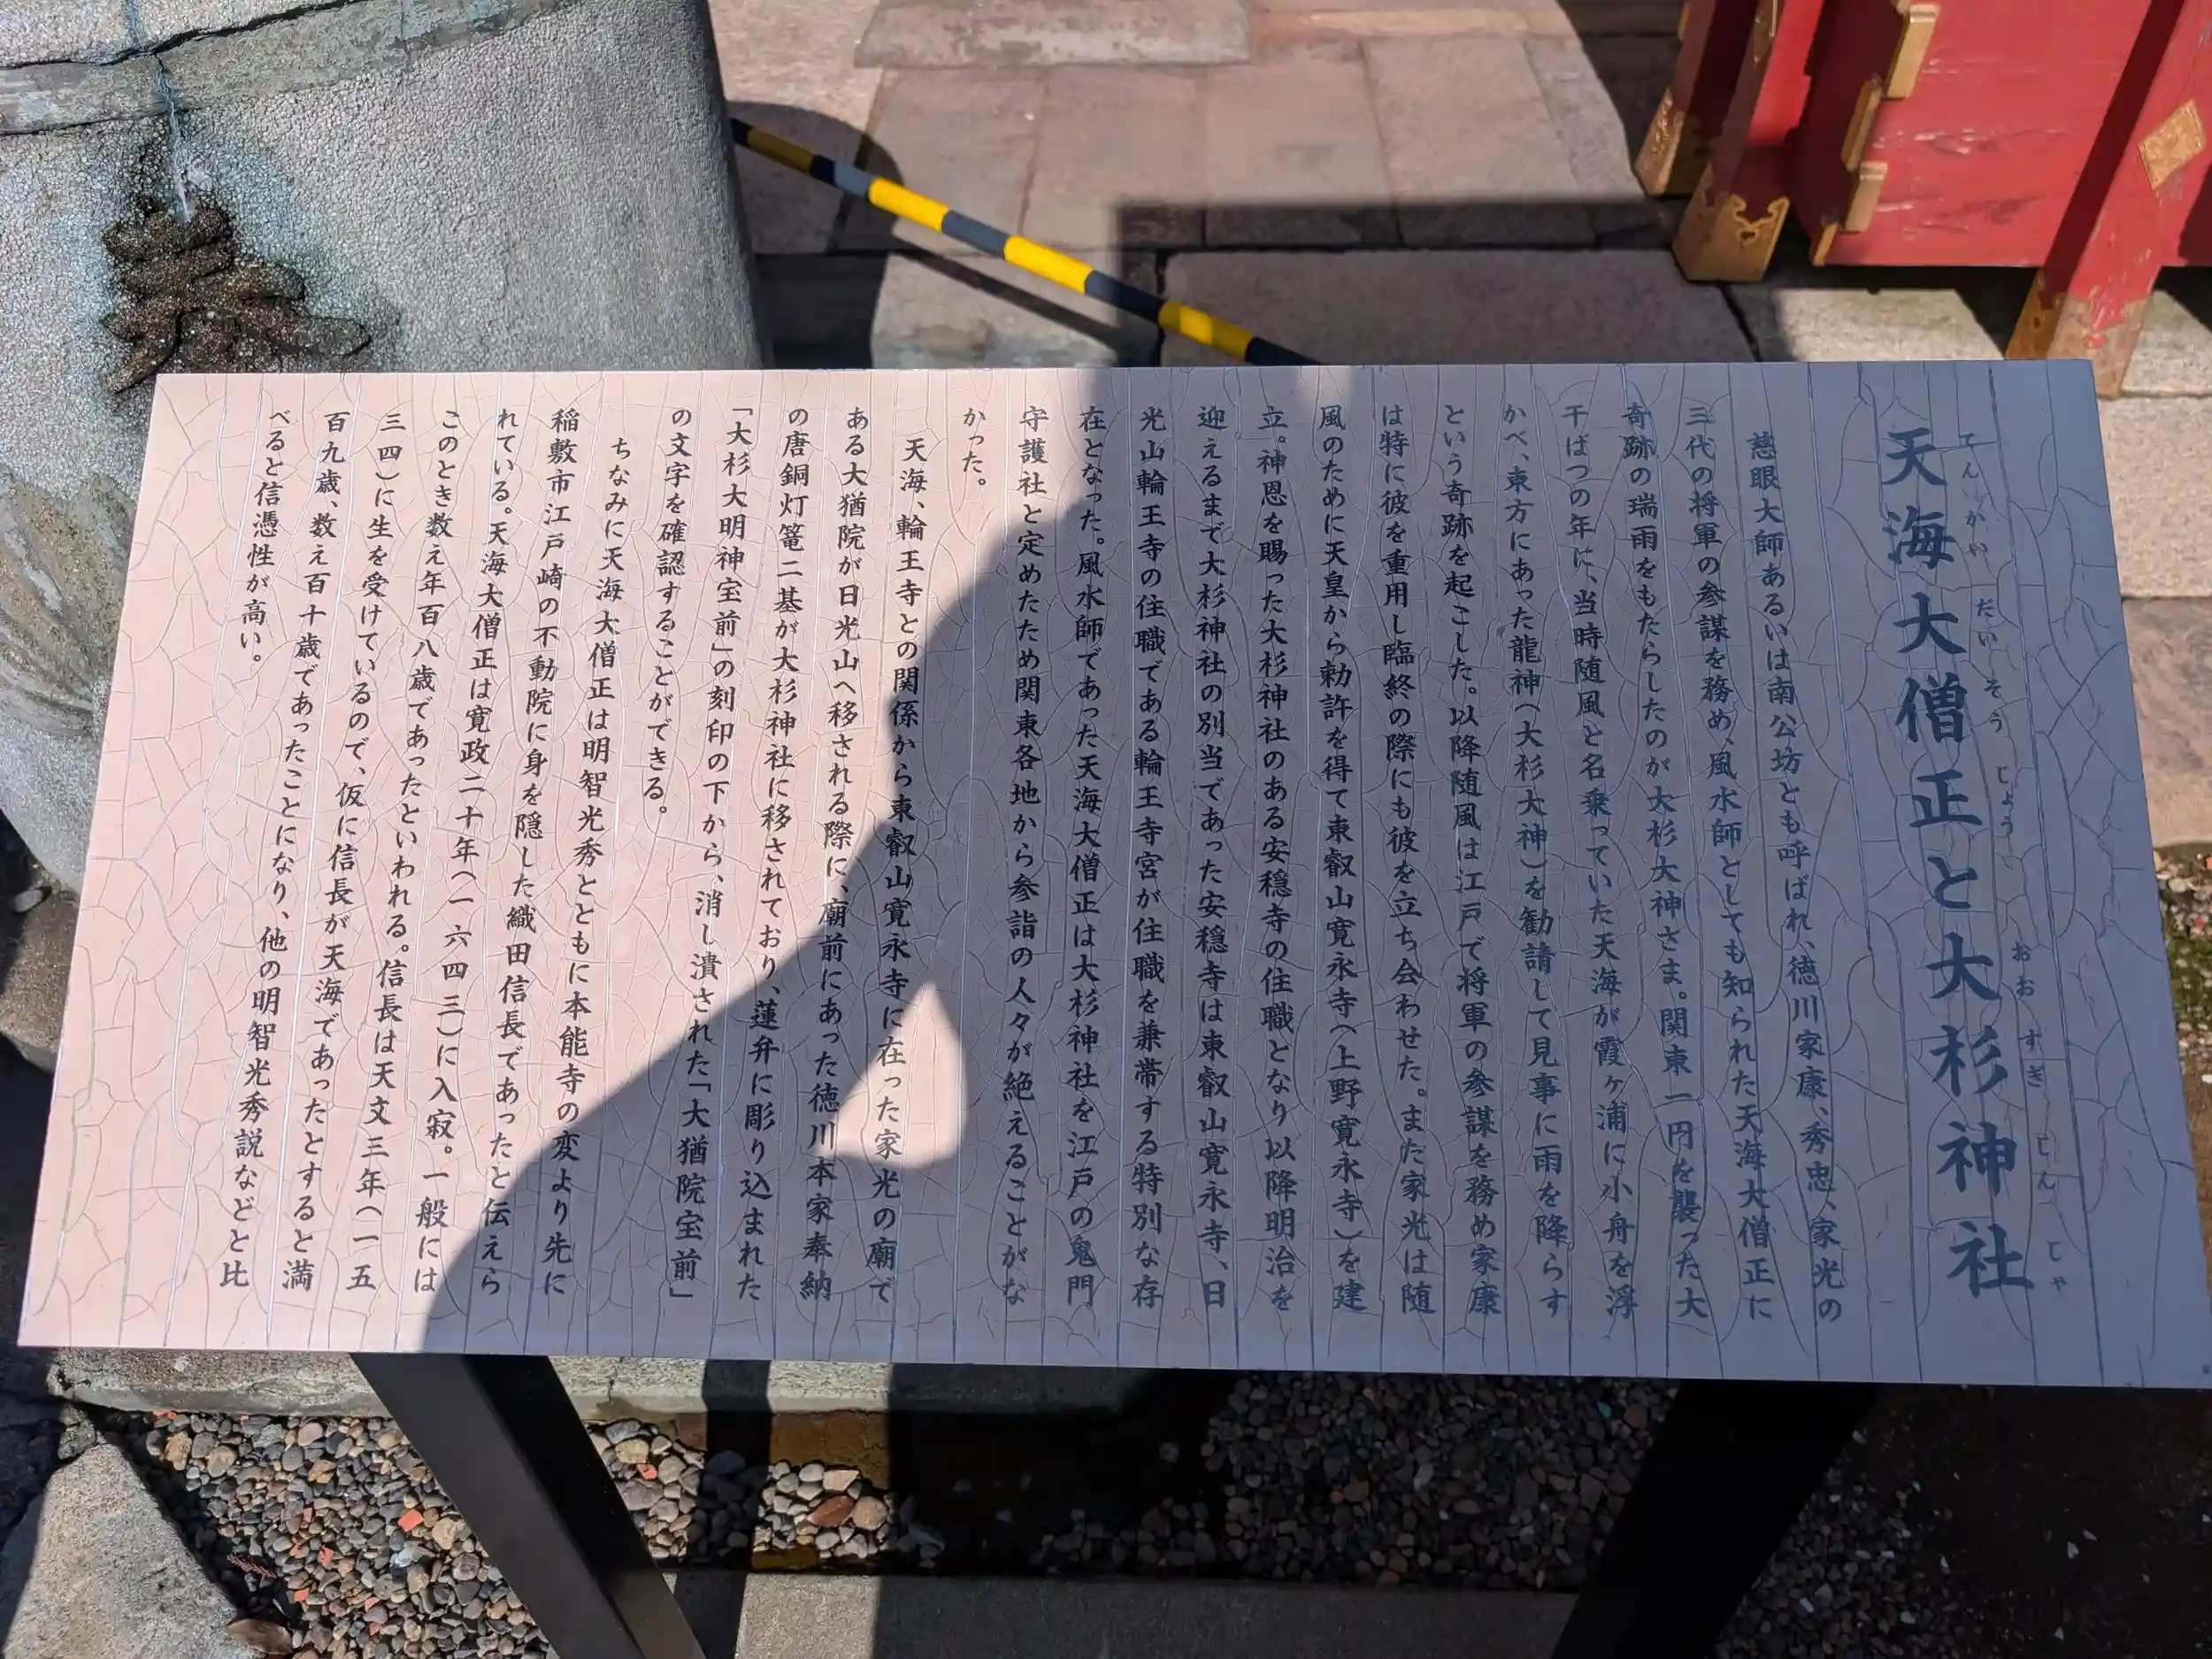 天海大僧正と大杉神社
てんかい だいそうじょう おおすぎじんじゃ
慈眼大師あるいは南公坊とも呼ばれ、徳川家康、秀忠、家光の
三代の将軍の参謀を務め、風水師としても知られた天海大僧正に
奇跡の瑞雨をもたらしたのが大杉大神さま。関東一円を襲った大
干ばつの年に、当時随風と名乗っていた天海が霞ヶ浦に小舟を浮
かべ、東方にあった龍神(大杉大神)を勧請して見事に雨を降らす
という奇跡を起こした。以降随風は江戸で将軍の参謀を務め家康
は特に彼を重用し臨終の際にも彼を立ち会わせた。また家光は随
風のために天皇から勅許を得て東叡山寛永寺(上野寛永寺)を建
立。神恩を賜った大杉神社のある安穏寺の住職となり以降明治を
迎えるまで大杉神社の別当であった安穏寺は東叡山寛永寺、日
光山輪王寺の住職である輪王寺宮が住職を兼帯する特別な存
在となった。風水師であった天海大僧正は大杉神社を江戸の鬼門
守護社と定めたため関東各地から参詣の人々が絶えることがな
かった。
天海、輪王寺との関係から東叡山寛永寺に在った家光の廟で
ある大猶院が日光山へ移される際に、廟前にあった徳川本家奉納
の唐銅灯篭二基が大杉神社に移されており、蓮弁に彫り込まれた
「大杉大明神宝前」の刻印の下から、消し潰された「大猶院宝前」
の文字を確認することができる。
ちなみに天海大僧正は明智光秀とともに本能寺の変より先に
稲敷市江戸崎の不動院に身を隠した織田信長であったと伝えら
れている。天海大僧正は寛政二十年(一六四三)に入寂。一般には
このとき数え年百八歳であったといわれる。信長は天文三年(一五
三四)に生を受けているので、仮に信長が天海であったとすると満
百九歳、数え百十歳であったことになり、他の明智光秀説などと比
べると信憑性が高い。